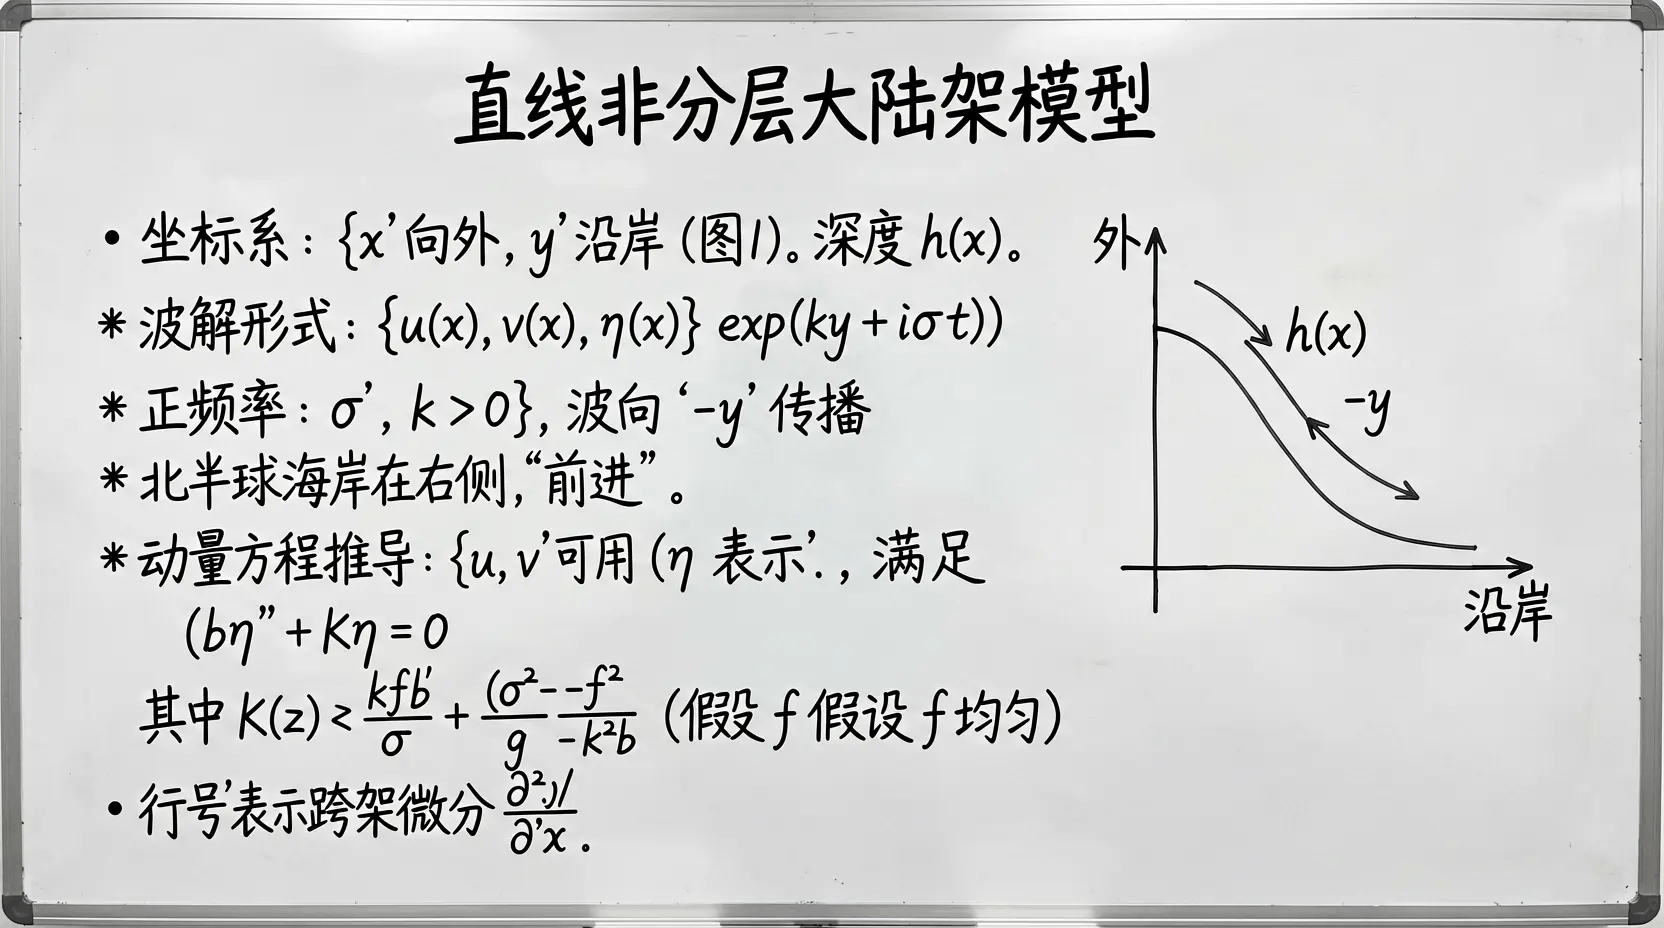 直线非分层大陆架模型
• 坐标系：{x'向外, y'沿岸 (图1)。深度 h(x)。
* 波解形式：{u(x), v(x), η(x)} exp(ky + iσt))
* 正频率：σ', k > 0}, 波向 ‘-y’ 传播
* 北半球海岸在右侧, “前进”。
* 动量方程推导：{u, v'可用 (η 表示'., 满足
(bη” + Kη = 0
其中 K(z) ≥ kfb'/σ + (σ²--f²/g -k²b (假设 f 假设 f 均匀)
• 行号'表示跨架微分 ∂²y/∂'x .
外
h(x)
-y
沿岸